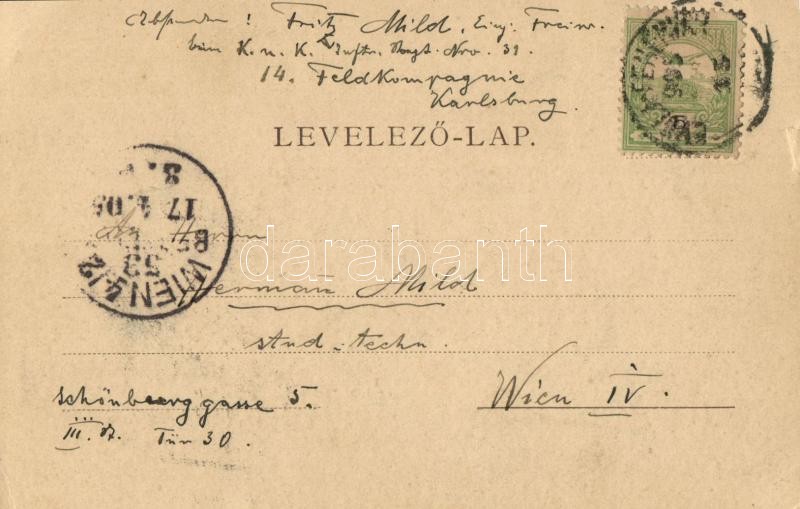 Absender! Fritz Mild, Einj. Freiw.
beim K. u. K. Inftr. Regt. Nro. 31
14. Feldkompagnie
Karlsburg.
LEVELEZŐ-LAP.
An Herrn
Herman Mild
stud. techn.
Wien IV.
Schönburggasse 5.
III. Tür 30.
WIEN 4/2
53
17
darabanth